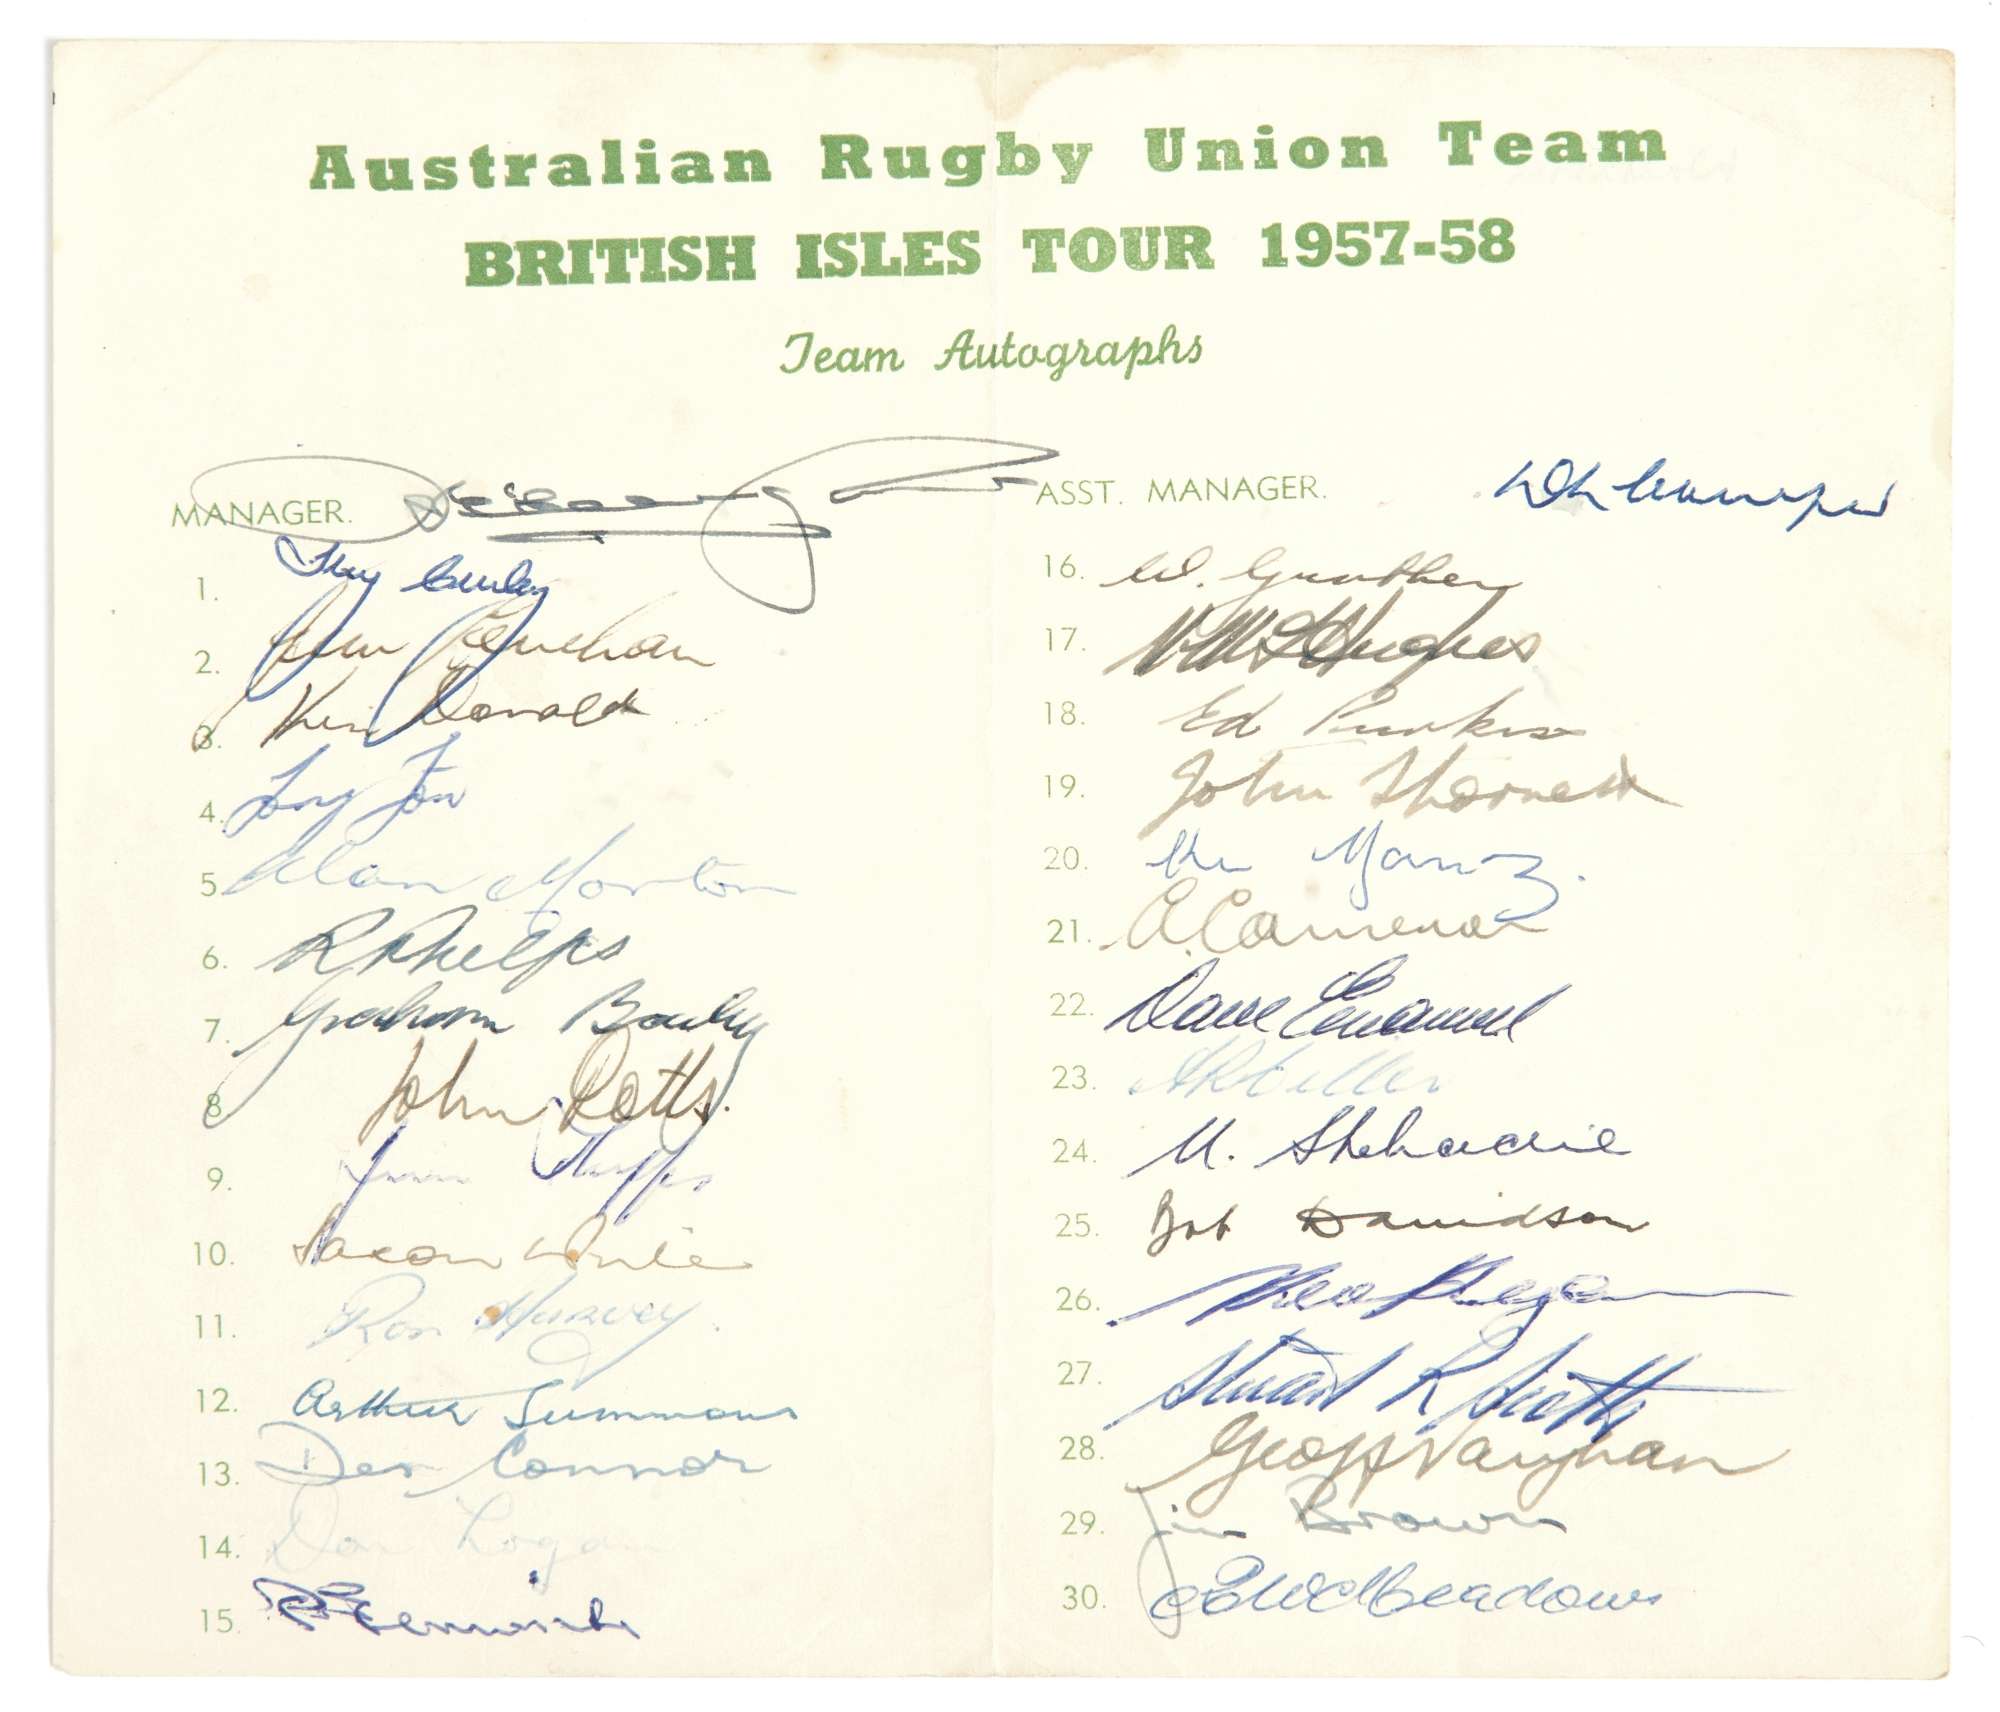 Australian Rugby Union Team
BRITISH ISLES TOUR 1957-58
Team Autographs
MANAGER.
1. Curley
2. Lenehan
3. Ken Donald
4. Tony Fox
5. Alan Morton
6. R Phelps
7. Graham Bailey
8. John Potts.
9. Jim Phipps
10. Saxon White
11. Ron Harvey.
12. Arthur Summons
13. Des Connor
14. Don Logan
15.
ASST. MANAGER.
16. W. Gunther
17. Hughes
18. Ed Purkiss
19. John Thornett
20. Ken Yanz.
21. A. Cameron
22. Dave Emanuel
23. Miller
24. M. Shehadie
25. Bob Davidson
26.
27. Stuart R Scotts
28. Geoff Vaughan
29. Jim Brown
30. Meadows